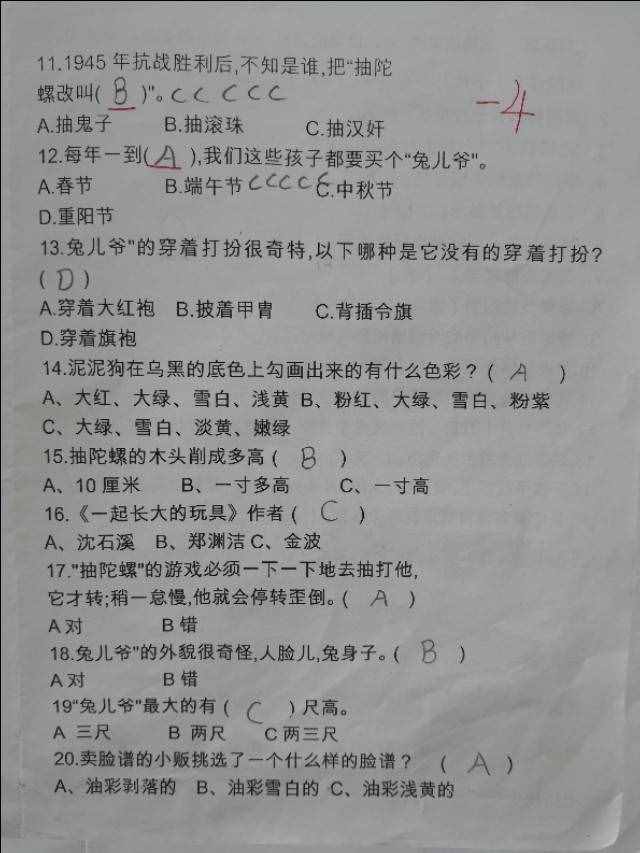 11.1945 年抗战胜利后,不知是谁,把“抽陀
螺改叫( B )”。C C C C C
-4
A.抽鬼子 B.抽滚珠 C.抽汉奸
12.每年一到( A ),我们这些孩子都要买个“兔儿爷”。
A.春节 B.端午节 C C C C C C.中秋节
D.重阳节
13.兔儿爷”的穿着打扮很奇特,以下哪种是它没有的穿着打扮?
( D )
A.穿着大红袍 B.披着甲胄 C.背插令旗
D.穿着旗袍
14.泥泥狗在乌黑的底色上勾画出来的有什么色彩？( A )
A、大红、大绿、雪白、浅黄 B、粉红、大绿、雪白、粉紫
C、大绿、雪白、淡黄、嫩绿
15.抽陀螺的木头削成多高 ( B )
A、10 厘米 B、一寸多高 C、一寸高
16.《一起长大的玩具》作者 ( C )
A、沈石溪 B、郑渊洁 C、金波
17."抽陀螺"的游戏必须一下一下地去抽打他,
它才转;稍一怠慢,他就会停转歪倒。( A )
A 对 B 错
18.兔儿爷”的外貌很奇怪,人脸儿,兔身子。( B )
A 对 B 错
19“兔儿爷”最大的有 ( C ) 尺高。
A 三尺 B 两尺 C 两三尺
20.卖脸谱的小贩挑选了一个什么样的脸谱？ ( A )
A、油彩剥落的 B、油彩雪白的 C、油彩浅黄的